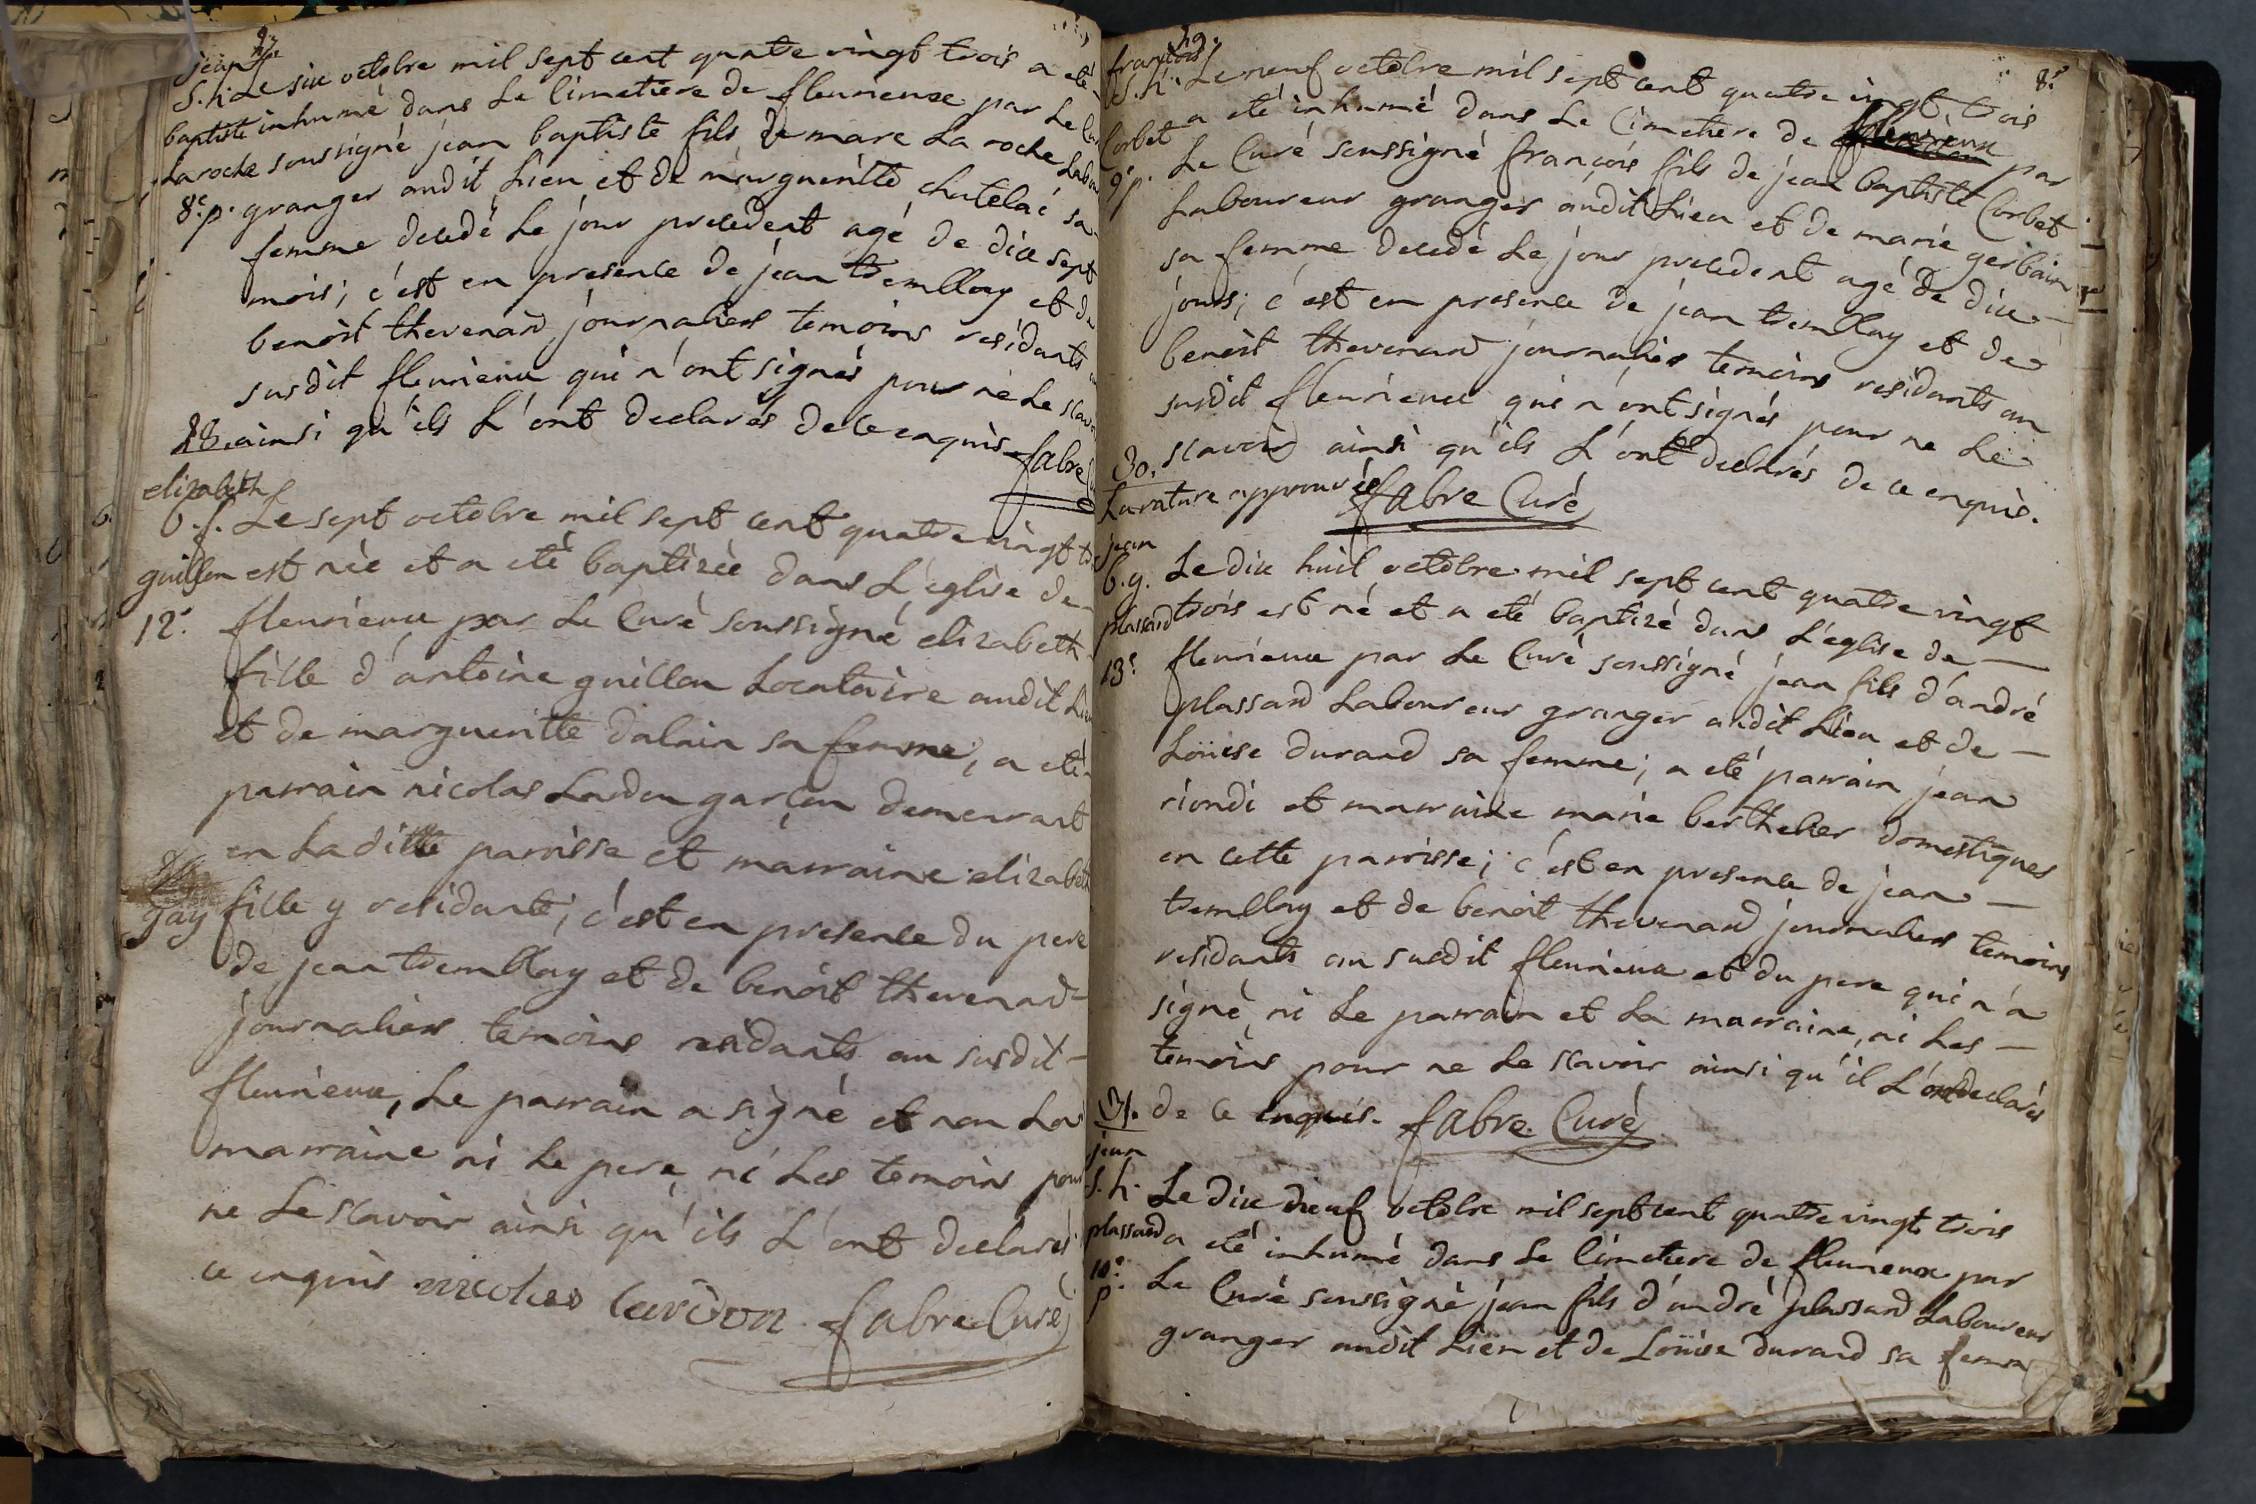 27.
jean
S. h. Le six octobre mil sept cent quatre vingt trois a eté
baptiste inhumé dans Le Cimetiere de fleurieux par Le
Laroche soussigné jean baptiste fils de marc La roche
8.e p. granger audit Lieu et de margueritte chatelai sa
femme decedé Le jour precedent agé de dix sept
mois; c'est en presence de jean tremblay et de
benoit thevenard journaliers temoins residants
susdit fleurieux qui n'ont signés pour ne Le
28. ainsi qu'ils L'ont declarés de ce enquis fabre
elizabeth
b. f. Le sept octobre mil sept cent quatre vingt
guillon est née et a eté baptizée dans L'eglise de
12.e fleurieux par Le Curé soussigné elizabeth
fille d'antoine guillon Locataire audit
et de marguerite dalain sa femme; a eté
parrain nicolas Lardon garçon demeurant
en Laditte parrisse et marraine elizabeth
gay fille y residante; c'est en presence du pere
de jean tremblay et de benoit thevenard
journaliers temoins residants au susdit
fleurieux, Le parrain a signé et non La
marraine ni Le pere ni Les temoins pour
ne Le scavoir ainsi qu'ils L'ont declarés
ce enquis nicolas lardon fabre Curé
8.e
29.
francois
S. h. Le neuf octobre mil sept cent quatre vingt trois
Corbet a eté inhumé dans Le Cimetiere de fleurieux par
9.e p. Le Curé soussigné françois fils de jean baptiste Corbet
Laboureur granger audit Lieu et de marie gerbain
sa femme decedé Le jour precedent agé de dix
jours; c'est en presence de jean tremblay et de
benoit thevenard journaliers temoins residants au
susdit fleurieux qui n'ont signés pour ne Le
30. scavoir ainsi qu'ils L'ont declarés de ce enquis.
La rature approuvée fabre Curé
jean
b. g. Le dix huit octobre mil sept cent quatre vingt
plassard trois est né et a eté baptizé dans L'eglise de
13.e fleurieux par Le Curé soussigné jean fils d'andré
plassard Laboureur granger audit Lieu et de
Loüise durand sa femme; a eté parrain jean
riondi et marraine marie berthelier domestiques
en cette parrisse; c'est en presence de jean
tremblay et de benoit thevenard journaliers temoins
residants au susdit fleurieux et du pere qui n'a
signé, ni Le parrain et La marraine, ni Les
temoins pour ne Le scavoir ainsi qu'il L'ont declarés
31. de ce enquis. fabre Curé
jean
S. h. Le dix neuf octobre mil sept cent quatre vingt trois
plassard a eté inhumé dans Le Cimetiere de fleurieux par
10.e p. Le Curé soussigné jean fils d'andré plassard Laboureur
granger audit Lieu et de Loüise durand sa femme